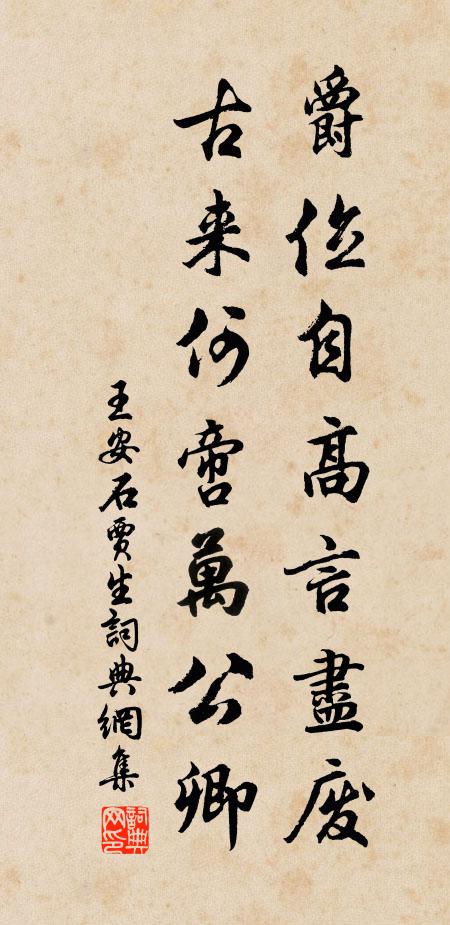 爵位自高言盡廢
古来何啻萬公卿
王安石賈生詞典網集
詞典網印